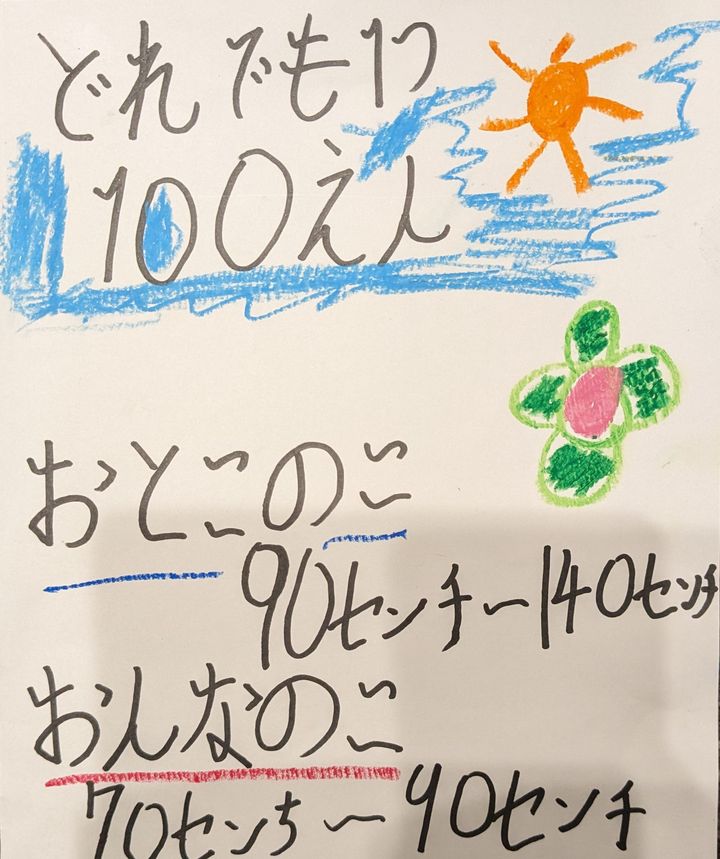 どれでも1つ
100えん
おとこのこ
90センチ〜140センチ
おんなのこ
70センち〜90センチ